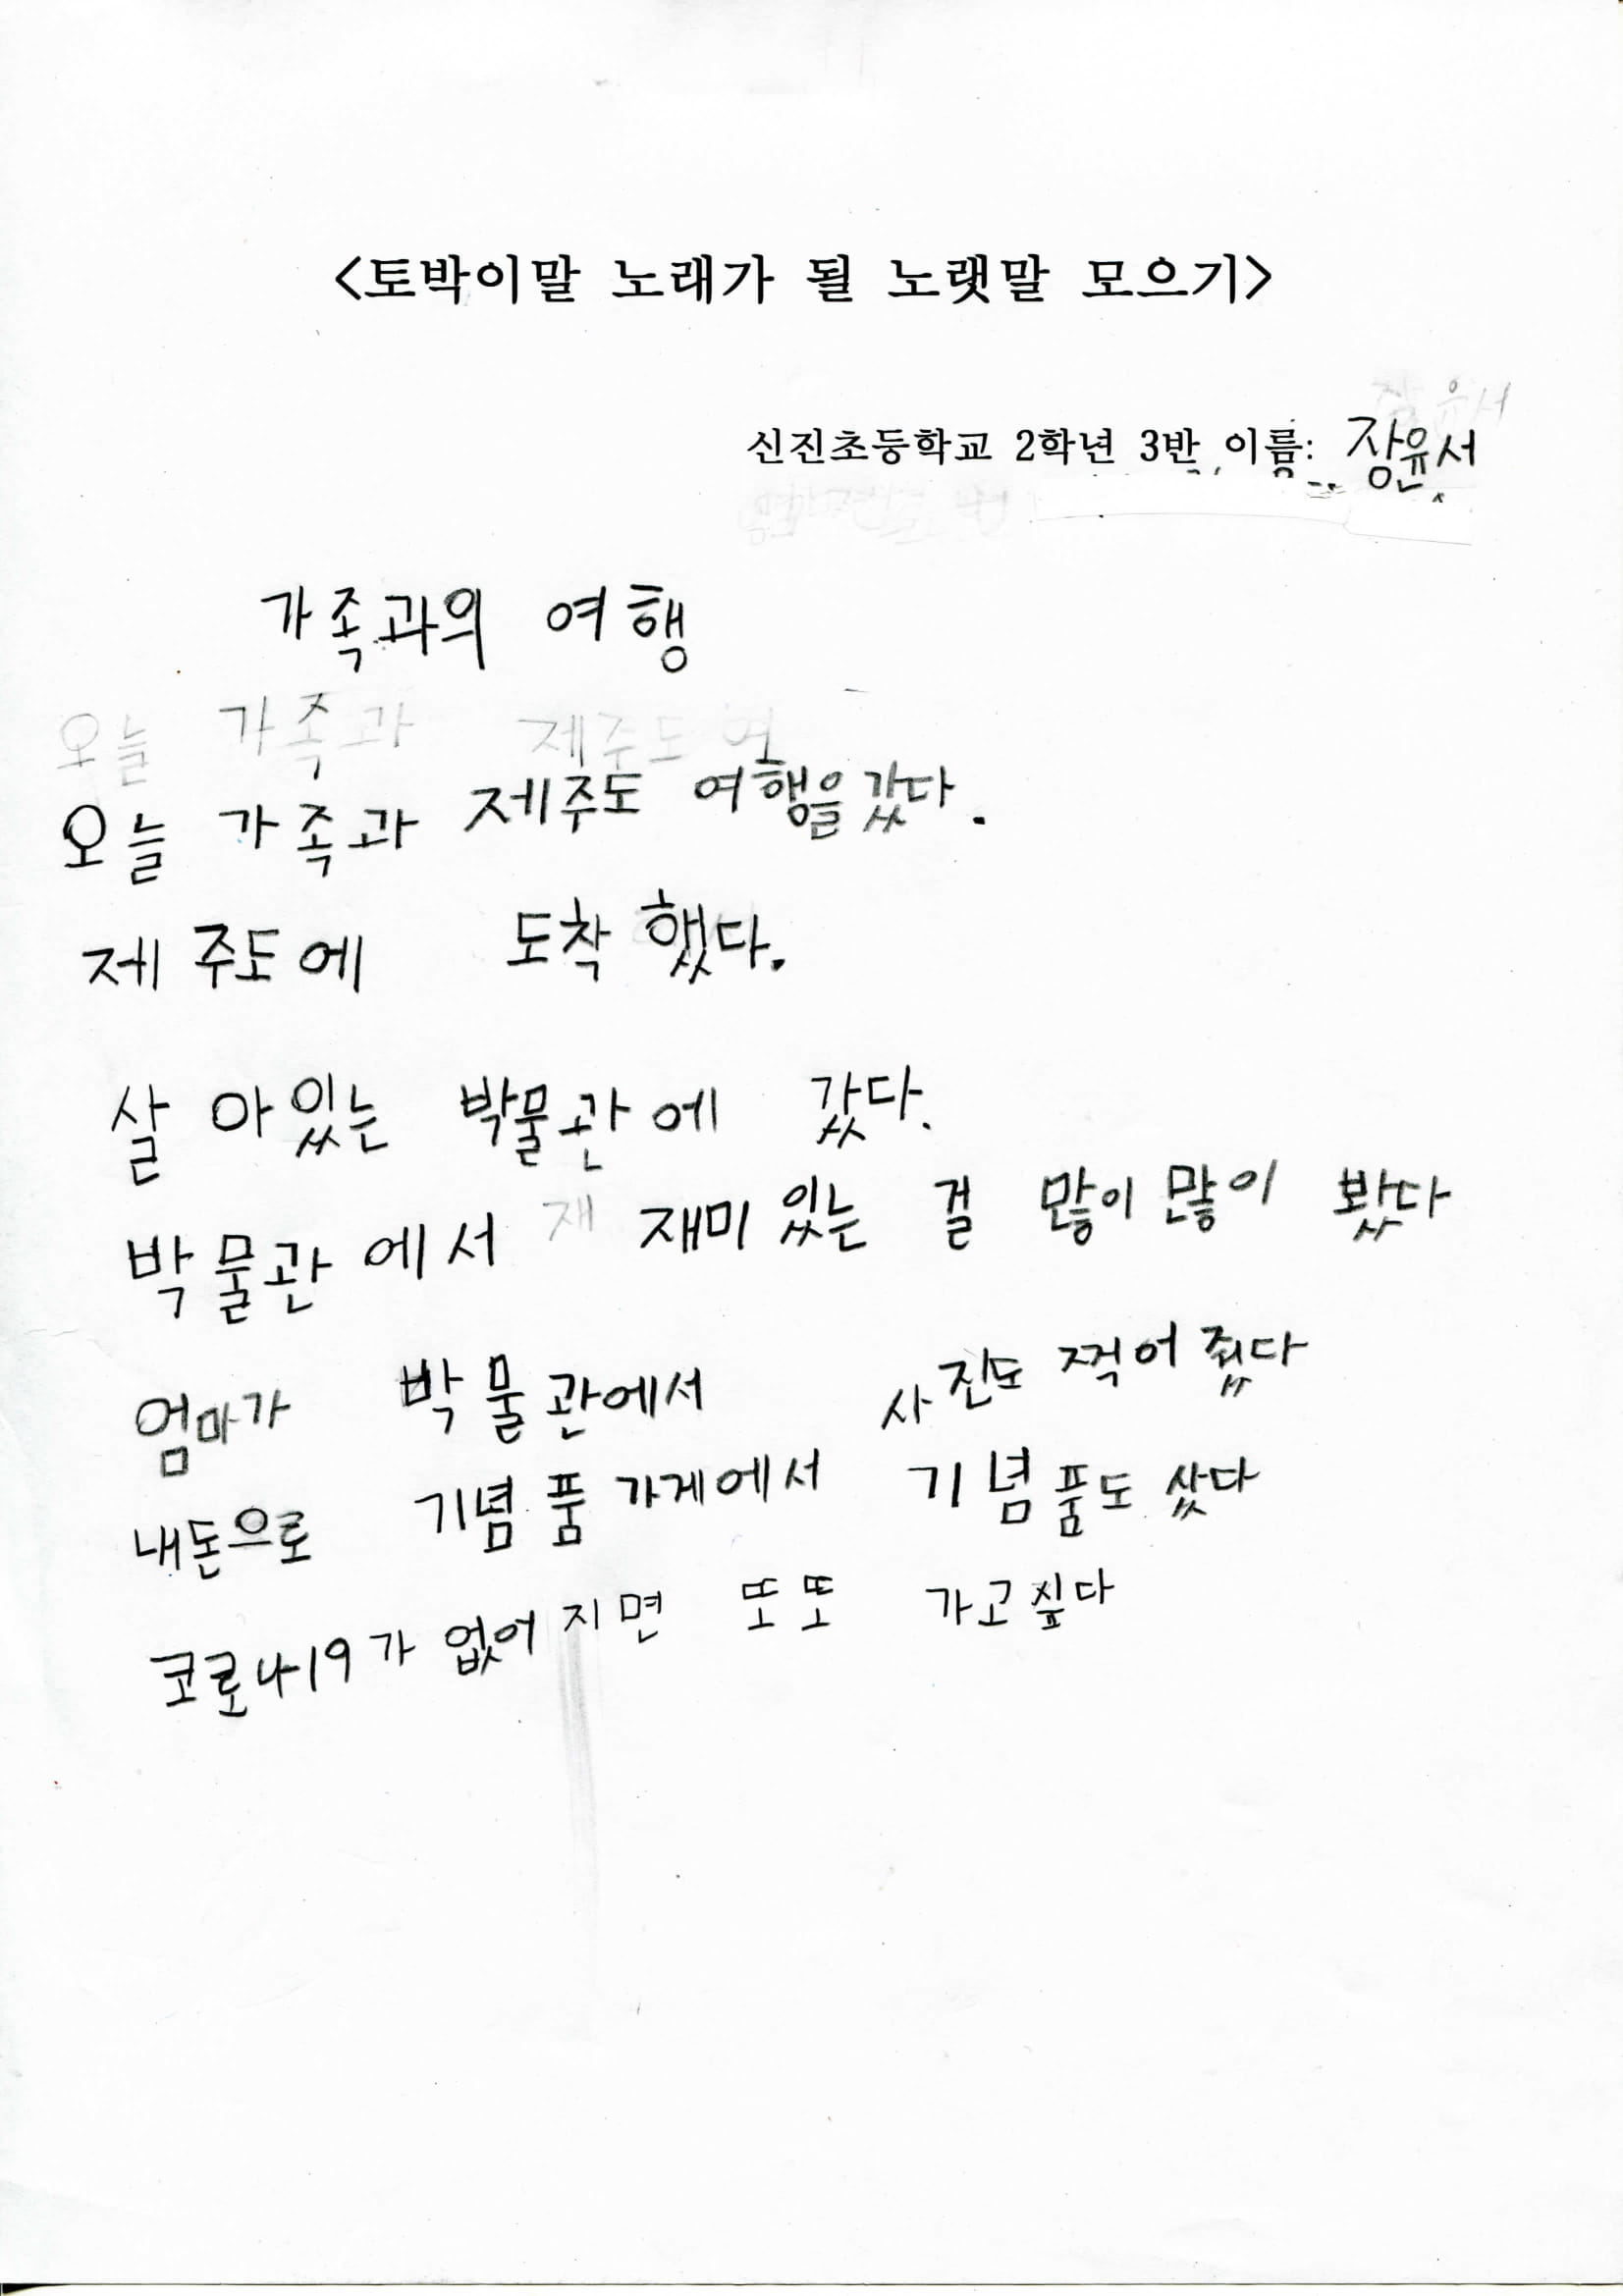 <토박이말 노래가 될 노랫말 모으기>
신진초등학교 2학년 3반 이름: 장윤서
가족과의 여행
오늘 가족과 제주도 여
오늘 가족과 제주도 여행을 갔다.
제주도에 도착했다.
살아있는 박물관에 갔다.
박물관에서 재 재미있는 걸 많이 많이 봤다
엄마가 박물관에서 사진도 찍어 줬다
내돈으로 기념품 가게에서 기념품도 샀다
코로나19가 없어지면 또또 가고싶다